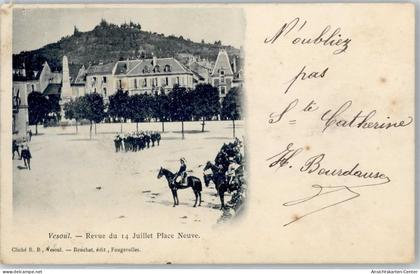 N'oubliez
pas
Ste Catherine
H. Bourdause
Vesoul. — Revue du 14 Juillet Place Neuve.
Cliché R. B., Vesoul. — Reuchet, édit., Fougerolles.